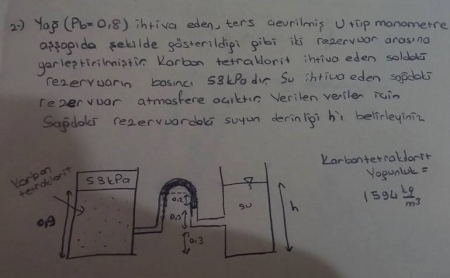 2-) Yağ (Pb=0,8) ihtiva eden, ters çevrilmiş U tüp manometre
aşşağıda şekilde gösterildiği gibi iki rezervuar arasına
yerleştirilmiştir. Karbon tetraklorit ihtiva eden soldaki
rezervuarın basıncı 53kPa dır. Su ihtiva eden sağdaki
rezervuar atmosfere açıktır. Verilen veriler için
Sağdaki rezervuardaki suyun derinliği h'ı belirleyiniz
Karbon
tetraklorit
53kPa
0,9
0,2
0,3
0.3
su
h
Karbontetraklorit
Yoğunluk =
1594 kg/m³